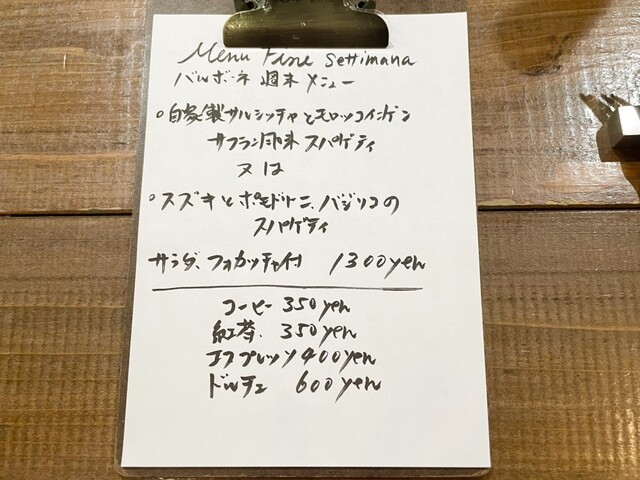 Menu Fine settimana
バルボーネ 週末 メニュー
○自家製サルシッチャとモロッコインゲン
サフラン風味 スパゲティ
又は
○スズキとポモドリーニ、バジリコの
スパゲティ
サラダ、フォカッチャ付 1300yen
コーヒー 350yen
紅茶. 350yen
エスプレッソ 400yen
ドルチェ 600yen